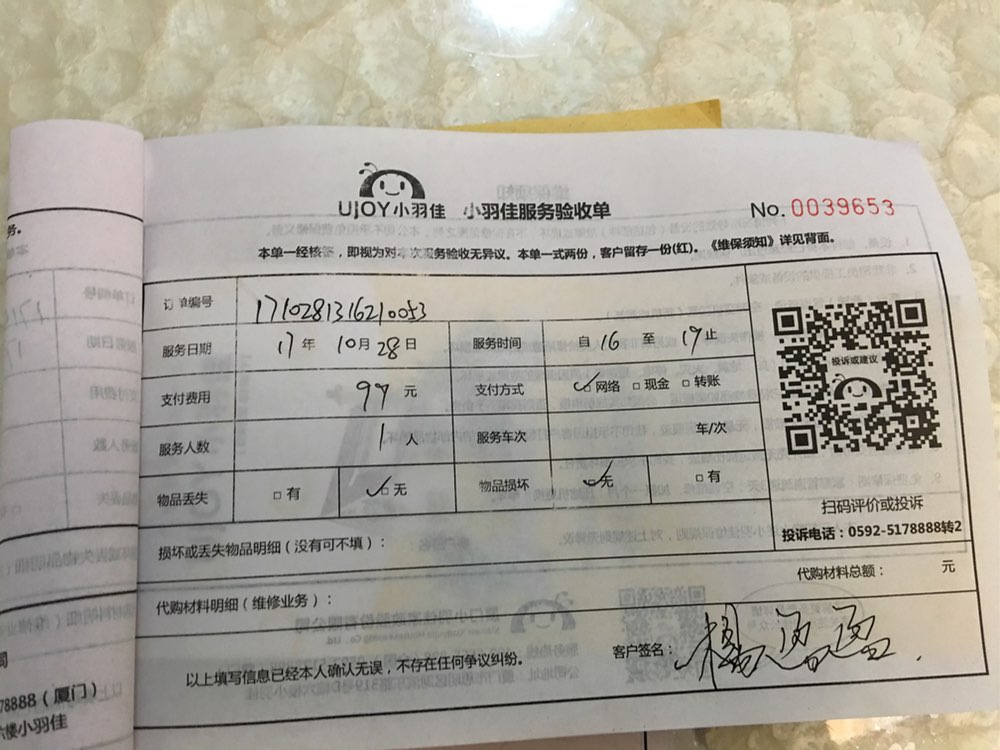 UJOY小羽佳 小羽佳服务验收单 No.0039653
本单一经核签，即视为对本次服务验收无异议。本单一式两份，客户留存一份(红)。《维保须知》详见背面。
订单编号 1710281316210053
服务日期 17年 10月28日 服务时间 自16至19止
支付费用 99元 支付方式 ☑网络 □现金 □转账
服务人数 1人 服务车次 车/次
物品丢失 □有 ☑无 物品损坏 ☑无 □有
投诉或建议
扫码评价或投诉
投诉电话：0592-5178888转2
损坏或丢失物品明细（没有可不填）：
代购材料总额： 元
代购材料明细（维修业务）：
以上填写信息已经本人确认无误，不存在任何争议纠纷。
客户签名：
务。
司
78888（厦门）
楼小羽佳